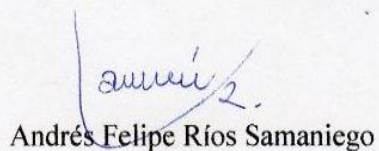 Andrés Felipe Ríos Samaniego